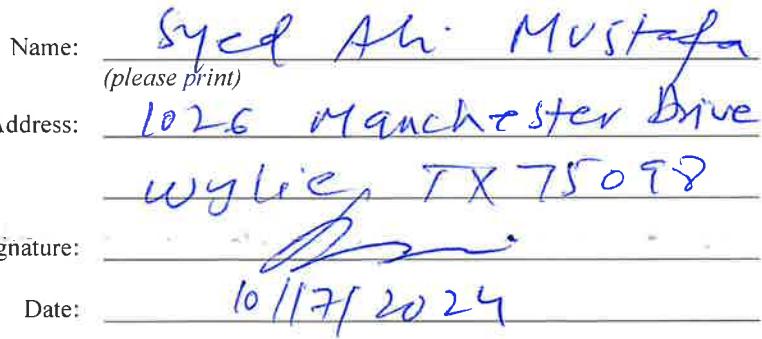 Name: Syed Ali Mustafa
(please print)
Address: 1026 Manchester Drive
Wylie, TX 75098
gnature:
Date: 10/17/2024